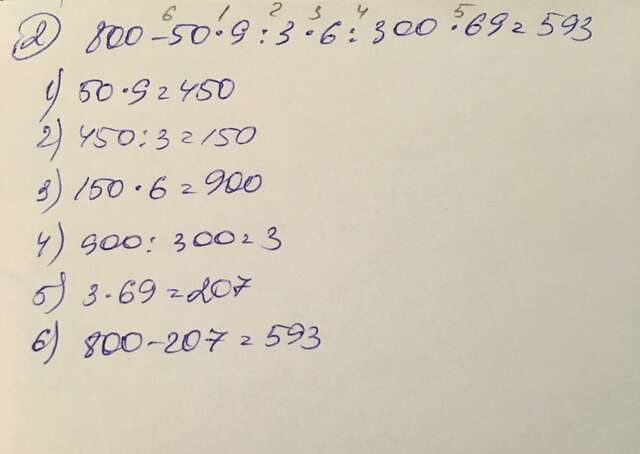 6 1 2 3 4 5
2) 800-50·9:3·6:300·69=593
1) 50·9=450
2) 450:3=150
3) 150·6=900
4) 900:300=3
5) 3·69=207
6) 800-207=593